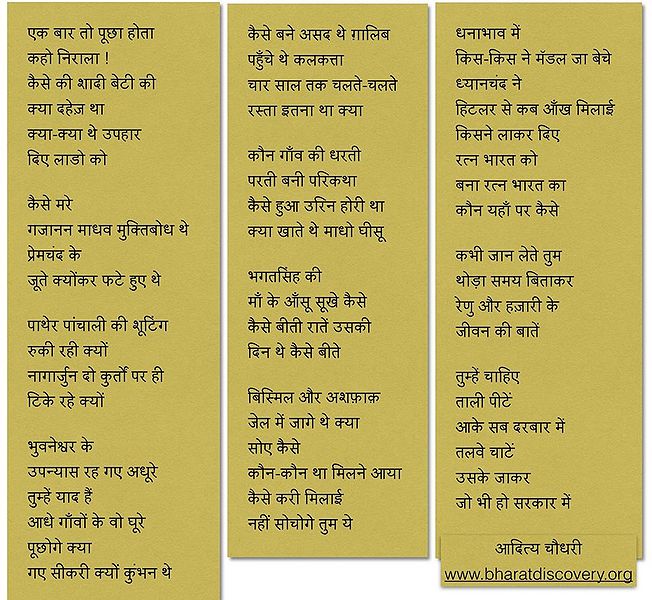 एक बार तो पूछा होता
कहो निराला !
कैसे की शादी बेटी की
क्या दहेज़ था
क्या-क्या थे उपहार
दिए लाडो को
कैसे मरे
गजानन माधव मुक्तिबोध थे
प्रेमचंद के
जूते क्योंकर फटे हुए थे
पाथेर पांचाली की शूटिंग
रुकी रही क्यों
नागार्जुन दो कुर्तों पर ही
टिके रहे क्यों
भुवनेश्वर के
उपन्यास रह गए अधूरे
तुम्हें याद हैं
आधे गाँवों के वो घूरे
पूछोगे क्या
गए सीकरी क्यों कुंभन थे
कैसे बने असद थे ग़ालिब
पहुँचे थे कलकत्ता
चार साल तक चलते-चलते
रस्ता इतना था क्या
कौन गाँव की धरती
परती बनी परिकथा
कैसे हुआ उरिन होरी था
क्या खाते थे माधो घीसू
भगतसिंह की
माँ के आँसू सूखे कैसे
कैसे बीती रातें उसकी
दिन थे कैसे बीते
बिस्मिल और अशफ़ाक़
जेल में जागे थे क्या
सोए कैसे
कौन-कौन था मिलने आया
कैसे करी मिलाई
नहीं सोचोगे तुम ये
धनाभाव में
किस-किस ने मॅडल जा बेचे
ध्यानचंद ने
हिटलर से कब आँख मिलाई
किसने लाकर दिए
रत्न भारत को
बना रत्न भारत का
कौन यहाँ पर कैसे
कभी जान लेते तुम
थोड़ा समय बिताकर
रेणु और हज़ारी के
जीवन की बातें
तुम्हें चाहिए
ताली पीटें
आके सब दरबार में
तलवे चाटें
उसके जाकर
जो भी हो सरकार में
आदित्य चौधरी
www.bharatdiscovery.org